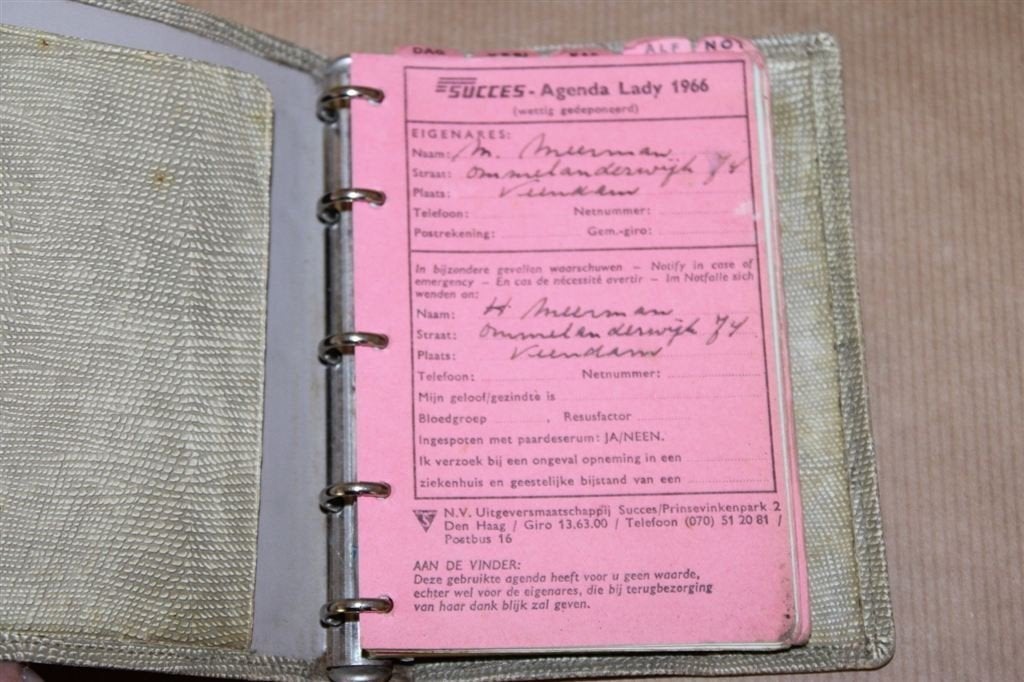 DAG ALF NOT
SUCCES - Agenda Lady 1966
(wettig gedeponeerd)
EIGENARES:
Naam: M. Meerman
Straat: Ommelanderwijk
Plaats: Veendam
Telefoon: Netnummer:
Postrekening: Gem.-giro:
In bijzondere gevallen waarschuwen — Notify in case of
emergency — En cas de nécessité avertir — Im Notfalle sich
wenden an:
Naam: H Meerman
Straat: Ommelanderwijk
Plaats: Veendam
Telefoon: Netnummer:
Mijn geloof/gezindte is
Bloedgroep , Resusfactor
Ingespoten met paardeserum: JA/NEEN.
Ik verzoek bij een ongeval opneming in een
ziekenhuis en geestelijke bijstand van een
N.V. Uitgeversmaatschappij Succes/Prinsevinkenpark 2
Den Haag / Giro 13.63.00 / Telefoon (070) 51 20 81 /
Postbus 16
AAN DE VINDER:
Deze gebruikte agenda heeft voor u geen waarde,
echter wel voor de eigenares, die bij terugbezorging
van haar dank blijk zal geven.